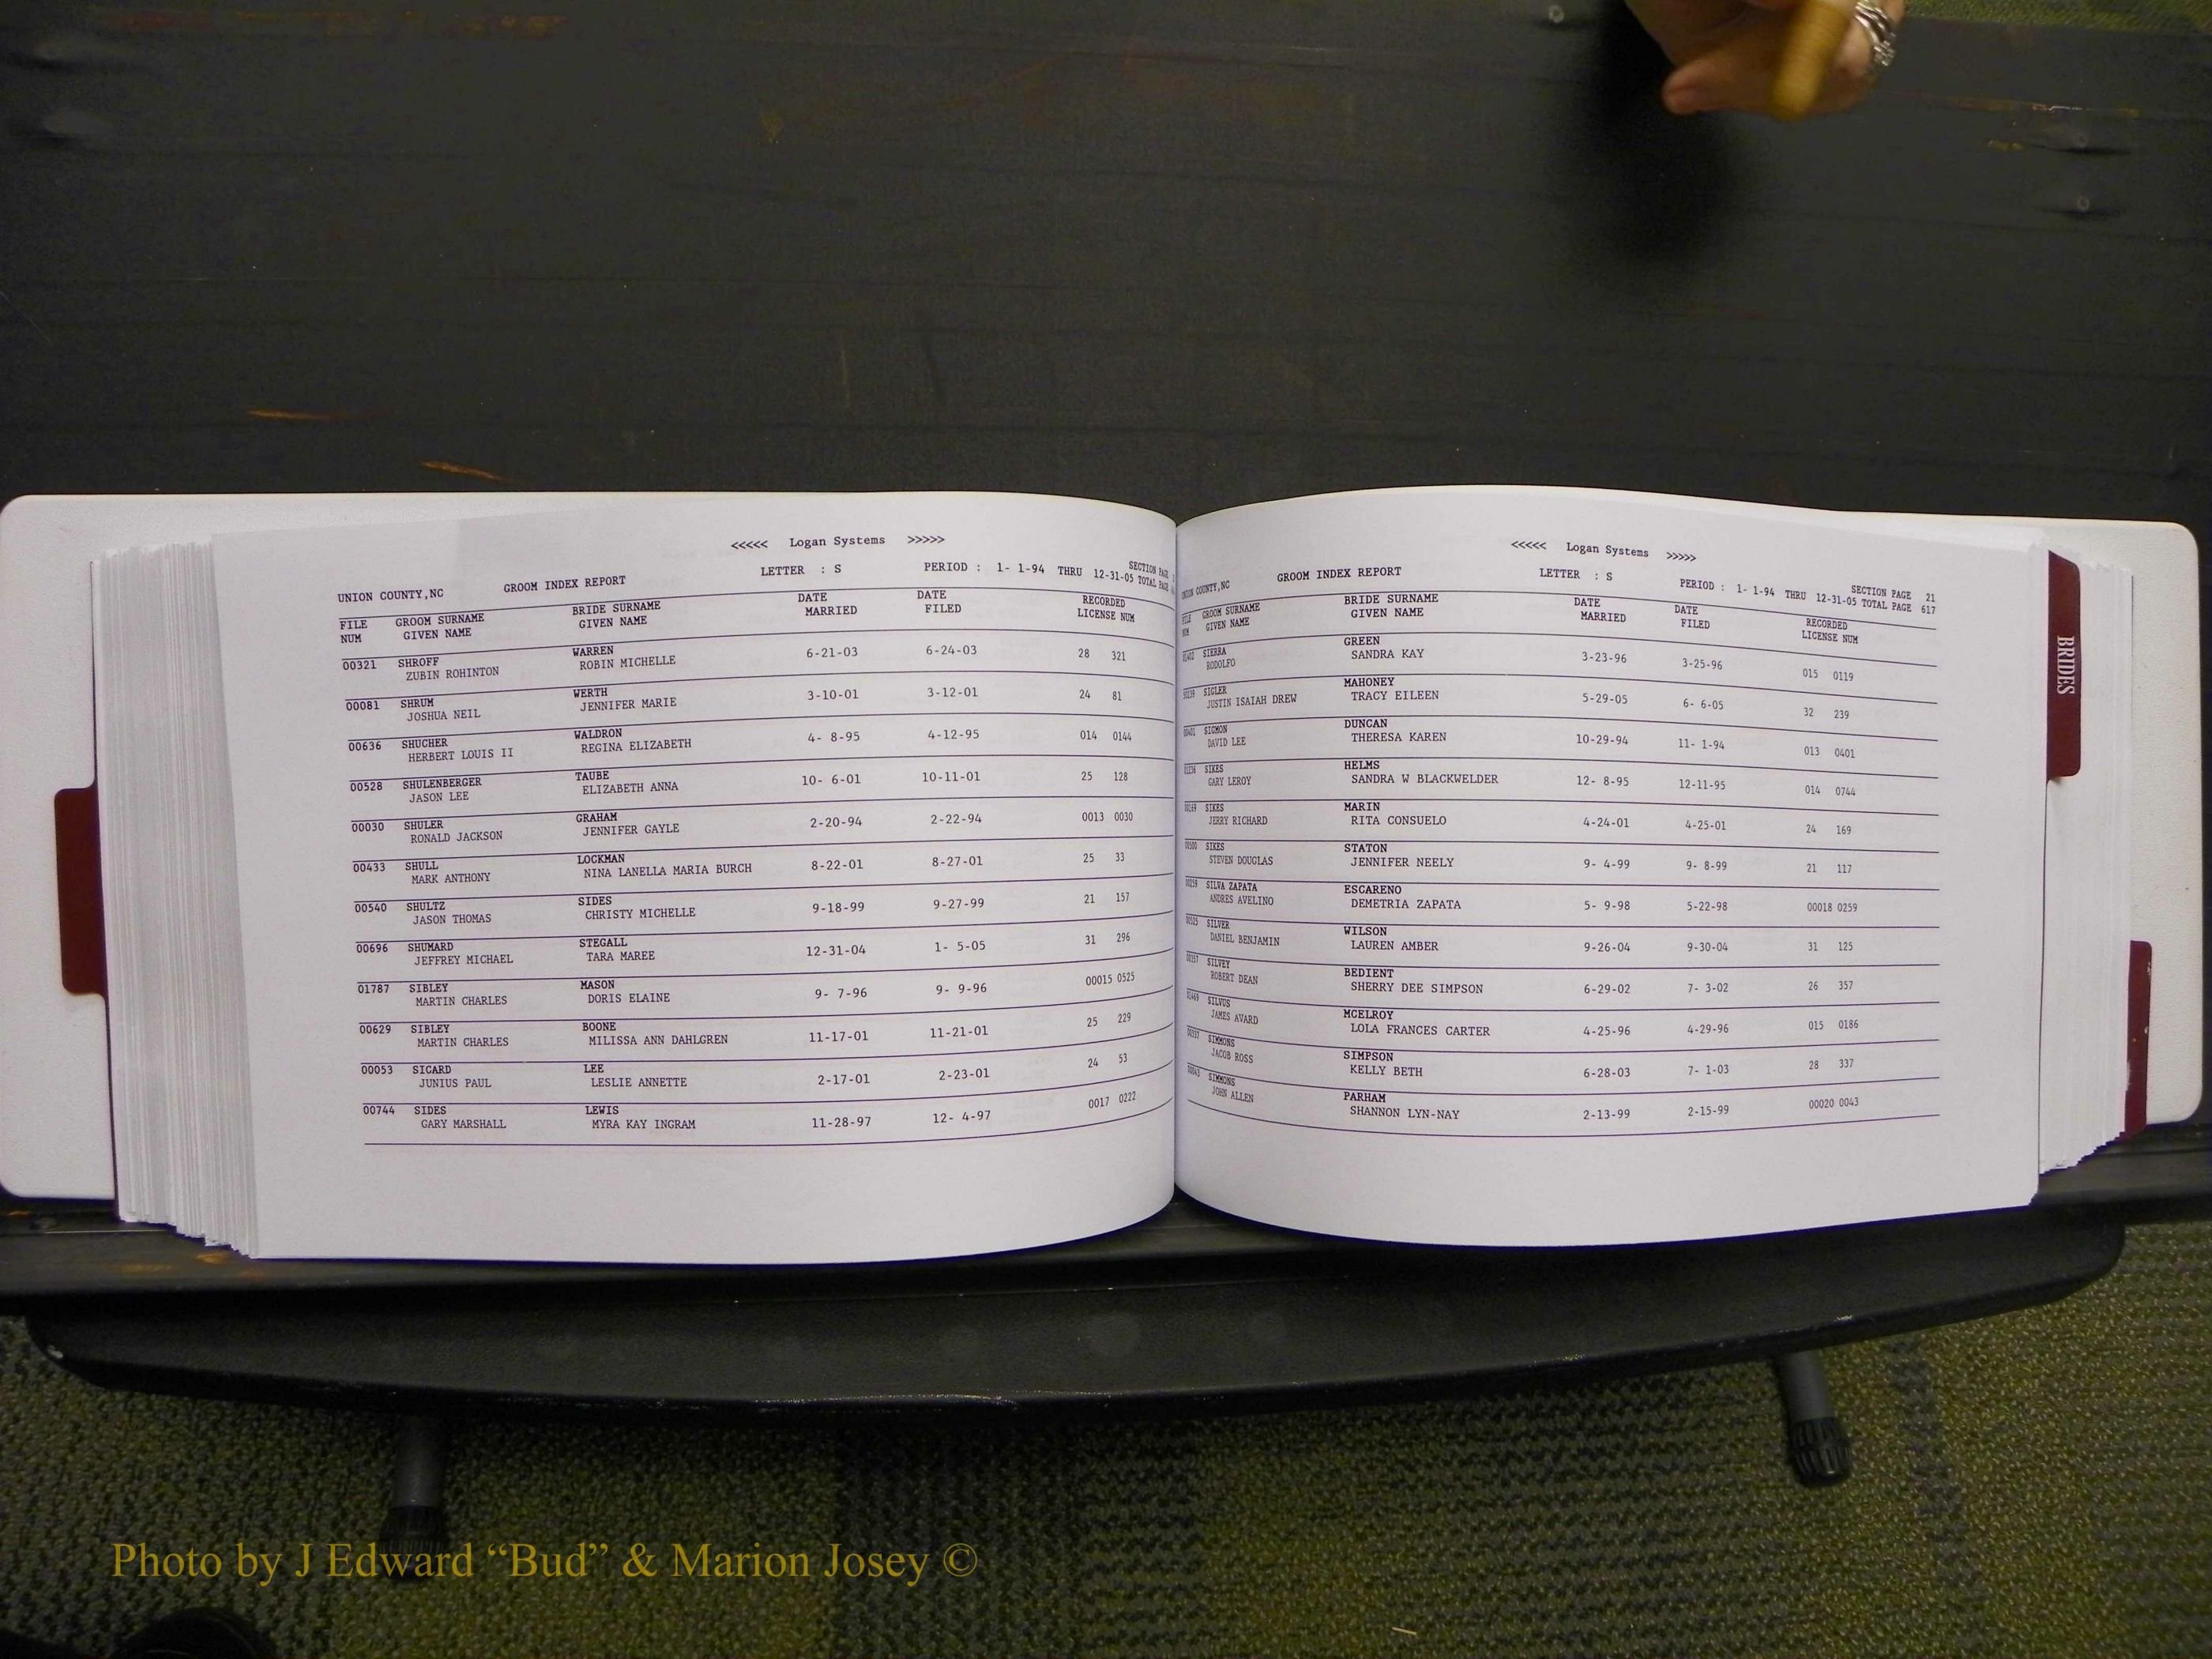 <<<<< Logan Systems >>>>>
UNION COUNTY,NC GROOM INDEX REPORT LETTER : S PERIOD : 1- 1-94 THRU 12-31-05 SECTION PAGE
TOTAL PAGE
FILE GROOM SURNAME BRIDE SURNAME DATE DATE RECORDED
NUM GIVEN NAME GIVEN NAME MARRIED FILED LICENSE NUM
00321 SHROFF WARREN 6-21-03 6-24-03 28 321
ZUBIN ROHINTON ROBIN MICHELLE
00081 SHRUM WERTH 3-10-01 3-12-01 24 81
JOSHUA NEIL JENNIFER MARIE
00636 SHUCHER WALDRON 4- 8-95 4-12-95 014 0144
HERBERT LOUIS II REGINA ELIZABETH
00528 SHULENBERGER TAUBE 10- 6-01 10-11-01 25 128
JASON LEE ELIZABETH ANNA
00030 SHULER GRAHAM 2-20-94 2-22-94 0013 0030
RONALD JACKSON JENNIFER GAYLE
00433 SHULL LOCKMAN 8-22-01 8-27-01 25 33
MARK ANTHONY NINA LANELLA MARIA BURCH
00540 SHULTZ SIDES 9-18-99 9-27-99 21 157
JASON THOMAS CHRISTY MICHELLE
00696 SHUMARD STEGALL 12-31-04 1- 5-05 31 296
JEFFREY MICHAEL TARA MAREE
01787 SIBLEY MASON 9- 7-96 9- 9-96 00015 0525
MARTIN CHARLES DORIS ELAINE
00629 SIBLEY BOONE 11-17-01 11-21-01 25 229
MARTIN CHARLES MILISSA ANN DAHLGREN
00053 SICARD LEE 2-17-01 2-23-01 24 53
JUNIUS PAUL LESLIE ANNETTE
00744 SIDES LEWIS 11-28-97 12- 4-97 0017 0222
GARY MARSHALL MYRA KAY INGRAM
<<<<< Logan Systems >>>>>
UNION COUNTY,NC GROOM INDEX REPORT LETTER : S PERIOD : 1- 1-94 THRU 12-31-05 SECTION PAGE 21
TOTAL PAGE 617
FILE GROOM SURNAME BRIDE SURNAME DATE DATE RECORDED
NUM GIVEN NAME GIVEN NAME MARRIED FILED LICENSE NUM
SIERRA GREEN 3-23-96 3-25-96 015 0119
RODOLFO SANDRA KAY
SIGLER MAHONEY 5-29-05 6- 6-05 32 239
JUSTIN ISAIAH DREW TRACY EILEEN
SIGMON DUNCAN 10-29-94 11- 1-94 013 0401
DAVID LEE THERESA KAREN
SIKES HELMS 12- 8-95 12-11-95 014 0744
GARY LEROY SANDRA W BLACKWELDER
SIKES MARIN 4-24-01 4-25-01 24 169
JERRY RICHARD RITA CONSUELO
SIKES STATON 9- 4-99 9- 8-99 21 117
STEVEN DOUGLAS JENNIFER NEELY
SILVA ZAPATA ESCARENO 5- 9-98 5-22-98 00018 0259
ANDRES AVELINO DEMETRIA ZAPATA
SILVER WILSON 9-26-04 9-30-04 31 125
DANIEL BENJAMIN LAUREN AMBER
SILVEY BEDIENT 6-29-02 7- 3-02 26 357
ROBERT DEAN SHERRY DEE SIMPSON
SILVUS MCELROY 4-25-96 4-29-96 015 0186
JAMES AVARD LOLA FRANCES CARTER
SIMMONS SIMPSON 6-28-03 7- 1-03 28 337
JACOB ROSS KELLY BETH
SIMMONS PARHAM 2-13-99 2-15-99 00020 0043
JOHN ALLEN SHANNON LYN-NAY
BRIDES
Photo by J Edward “Bud” & Marion Josey ©